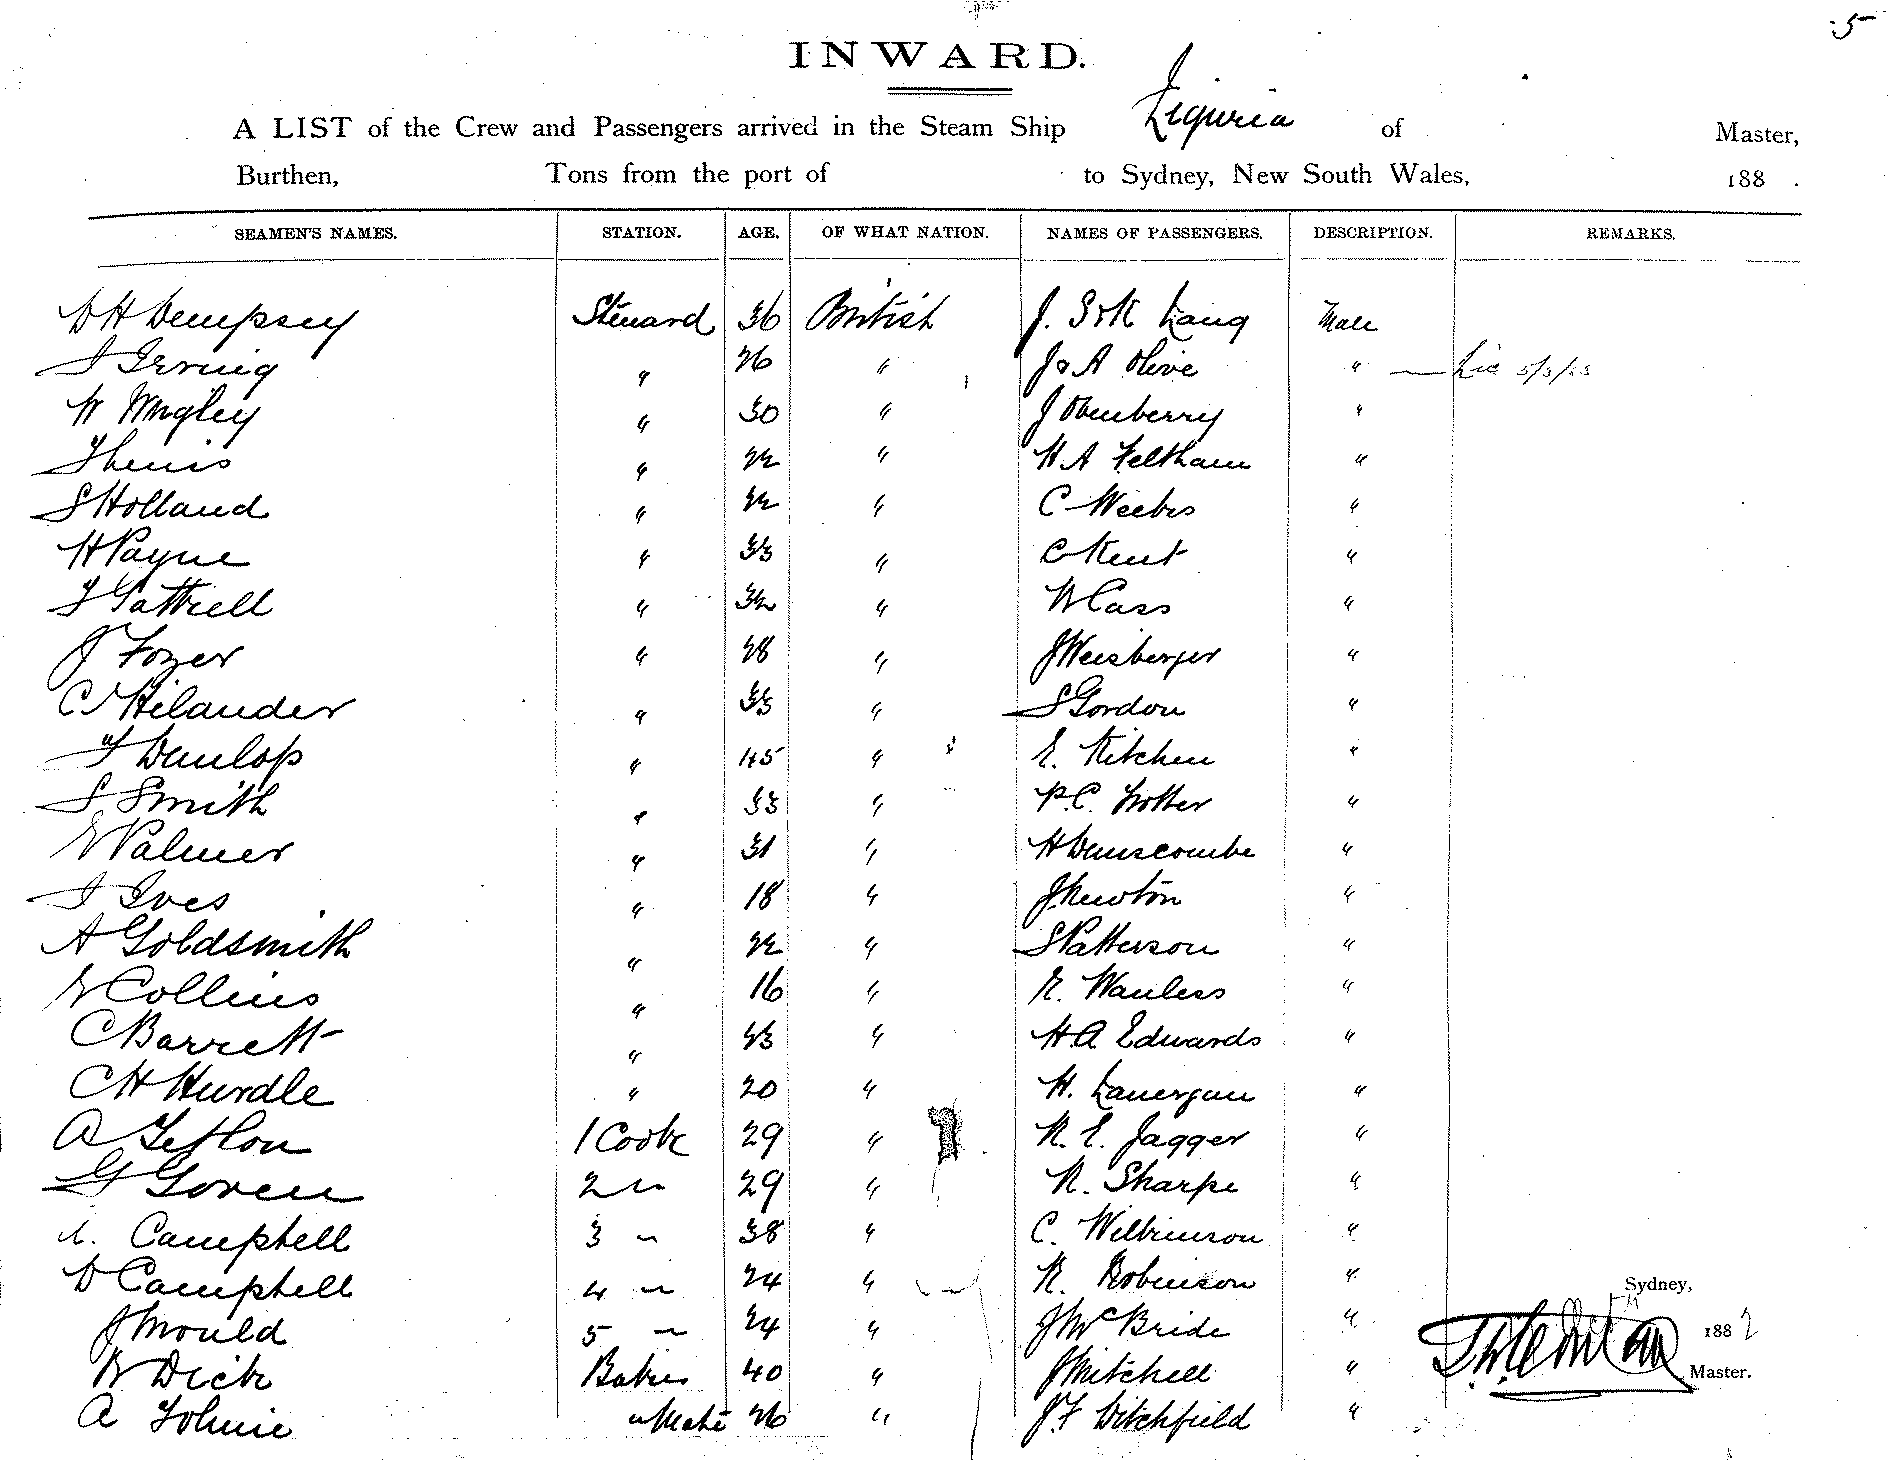 5
INWARD.
A LIST of the Crew and Passengers arrived in the Steam Ship Liguria of Master,
Burthen, Tons from the port of to Sydney, New South Wales, 188 .
SEAMEN'S NAMES. STATION. AGE. OF WHAT NATION. NAMES OF PASSENGERS. DESCRIPTION. REMARKS.
D H Dempsey Steward 36 British J. Lang Male
Irving " 26 " J A Olive "
W Wrigley " 30 " J "
" 22 " H A Feltham "
S Holland " 22 " C "
H Payne " 33 " C Kent "
" 32 " W Cass "
J Tozer " 28 " J Weisberger "
C " 33 " S Gordon "
Dunlop " 45 " E. Kitchen "
S Smith " 33 " P. C. Trotter "
E Palmer " 31 " H "
I Ives " 18 " J Newton "
A Goldsmith " 22 " S Patterson "
E Collins " 16 " R. Wanless "
C Barrett " 23 " H. A Edwards "
C H Hurdle " 20 " H. "
A 1 Cook 29 " R. E. Jagger "
G 2 " 29 " R. Sharpe "
Campbell 3 " 38 " C. Wilkinson "
D Campbell 4 " 24 " R. Robinson "
J Mould 5 " 24 " J McBride "
W Dick Baker 40 " J Mitchell "
A " Mate 26 " J F Ditchfield "
Sydney,
188
Master.